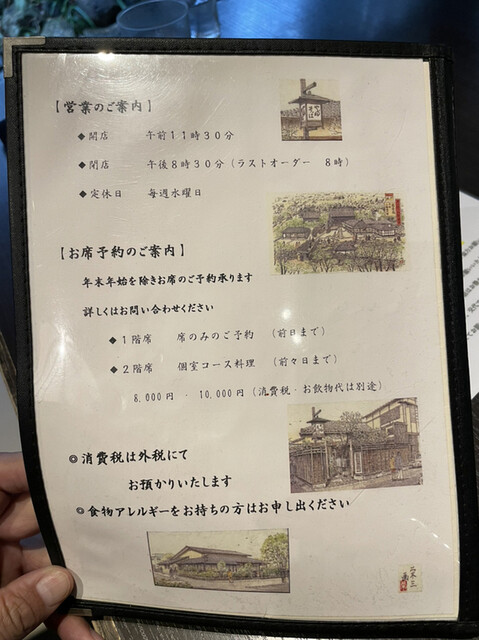 【営業のご案内】
◆開店 午前11時30分
◆閉店 午後8時30分(ラストオーダー 8時)
◆定休日 毎週水曜日
【お席予約のご案内】
年末年始を除きお席のご予約承ります
詳しくはお問い合わせください
◆1階席 席のみのご予約 (前日まで)
◆2階席 個室コース料理 (前々日まで)
8,000円・10,000円(消費税・お飲物代は別途)
◎消費税は外税にて
お預かりいたします
◎食物アレルギーをお持ちの方はお申し出ください